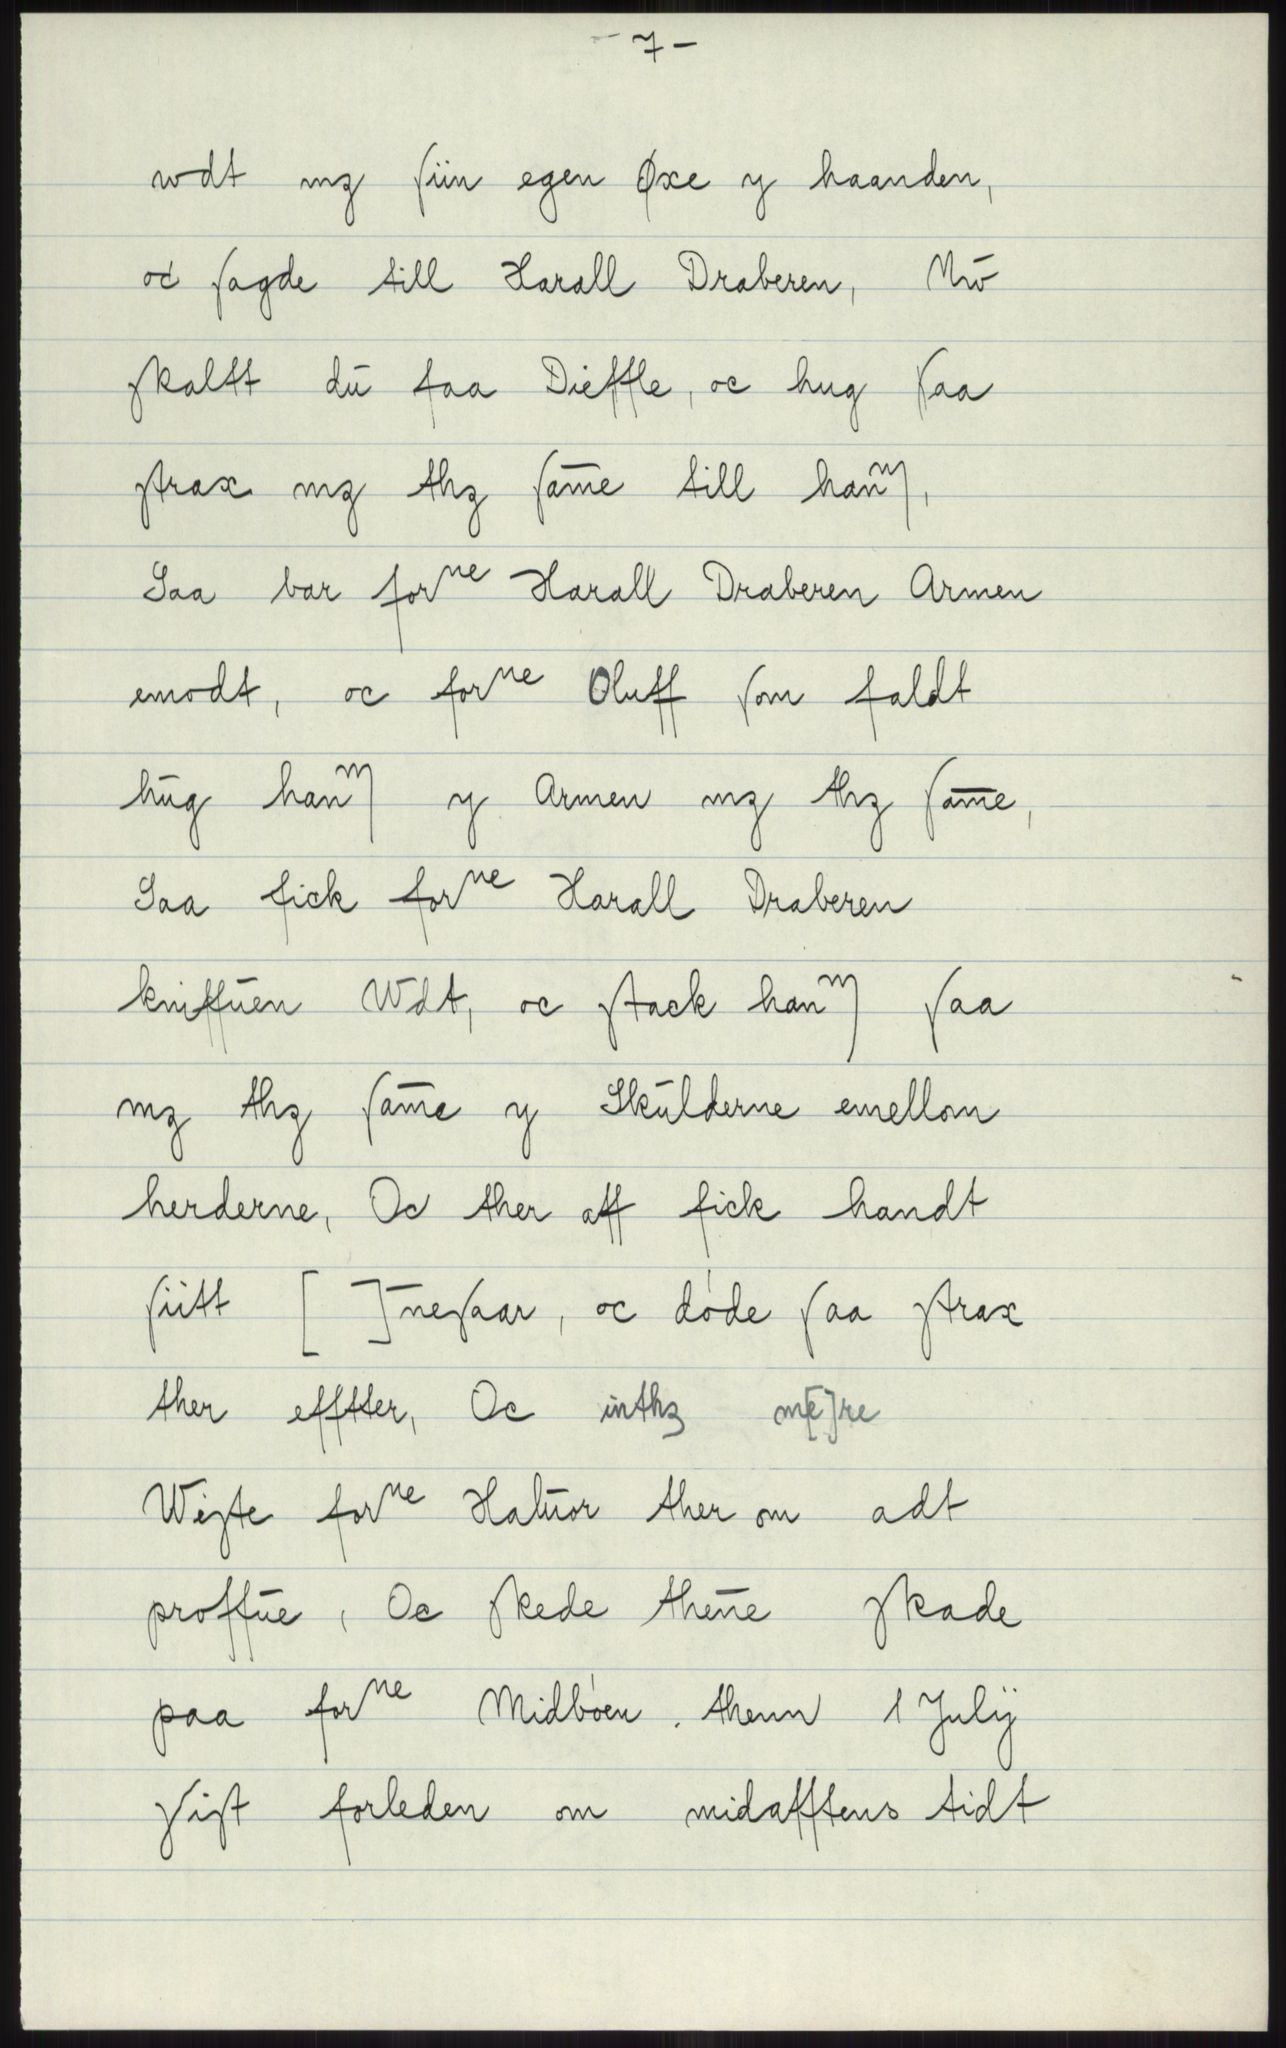 - 7 -
wdt mꝫ ſiin egen Øxe y haanden,
oc ſagde till Harall Draberen, Nw̄
ſkaltt dū faa Dieffle, oc hug ſaa
ſtrax mꝫ thꝫ ſam̄e till hanⁿ,
Saa bar forⁿᵉ Harall Draberen Armen
emodt, oc forⁿᵉ Oluff ſom faldt
hūg hanⁿ y Armen mꝫ thꝫ ſam̄e,
Saa fick forⁿᵉ Harall Draberen
kniffūen Wdt, oc ſtack hanⁿ ſaa
mꝫ thꝫ ſam̄e y Skūlderne emellom
herderne, Oc ther aff fick handt
ſiitt [ ]neſaar, oc døde ſaa ſtrax
ther efftter, Oc inthꝫ m[e]re
Wiſte forⁿᵉ Halūor ther om adt
proffūe, Oc ſkede then̄e ſkade
paa forⁿᵉ Midbøen. thenn 1 Julÿ
ſiſt forleden om midafftens tidt